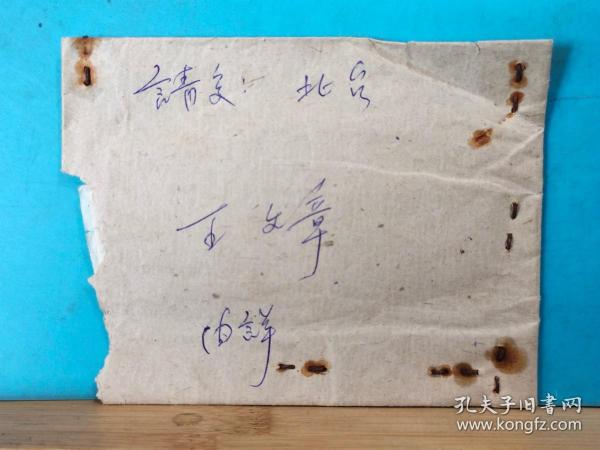 請交: 北台
王文章
内詳
孔夫子旧書网
www.kongfz.com